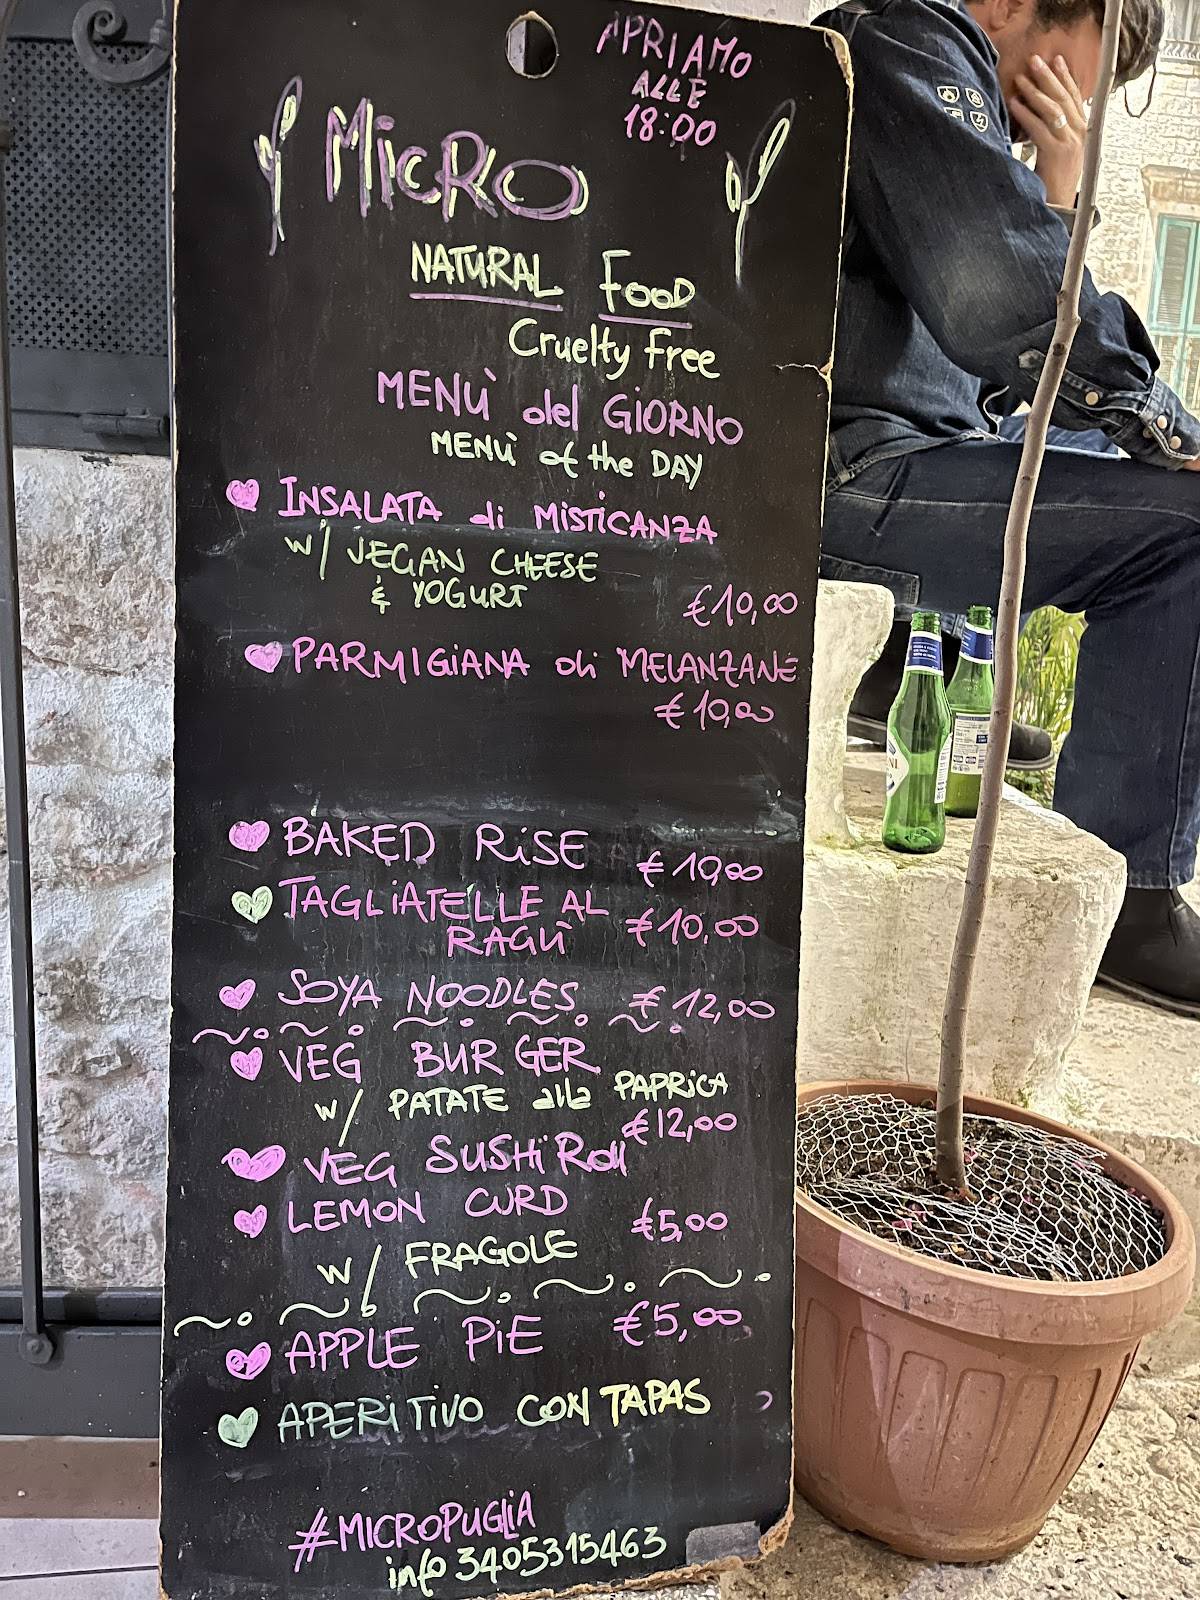 APRIAMO
ALLE
18:00
MICRO
NATURAL FOOD
Cruelty Free
MENÙ del GIORNO
MENÙ of the DAY
INSALATA di MISTICANZA
w/ VEGAN CHEESE
& YOGURT
€10,00
PARMIGIANA di MELANZANE
€10,00
BAKED RISE €10,00
TAGLIATELLE AL
RAGÙ €10,00
SOYA NOODLES €12,00
VEG BURGER
w/ PATATE alla PAPRICA
€12,00
VEG SUSHI Roll
LEMON CURD €5,00
w/ FRAGOLE
APPLE PIE €5,00
APERITIVO CON TAPAS
#MICROPUGLIA
info 3405315463